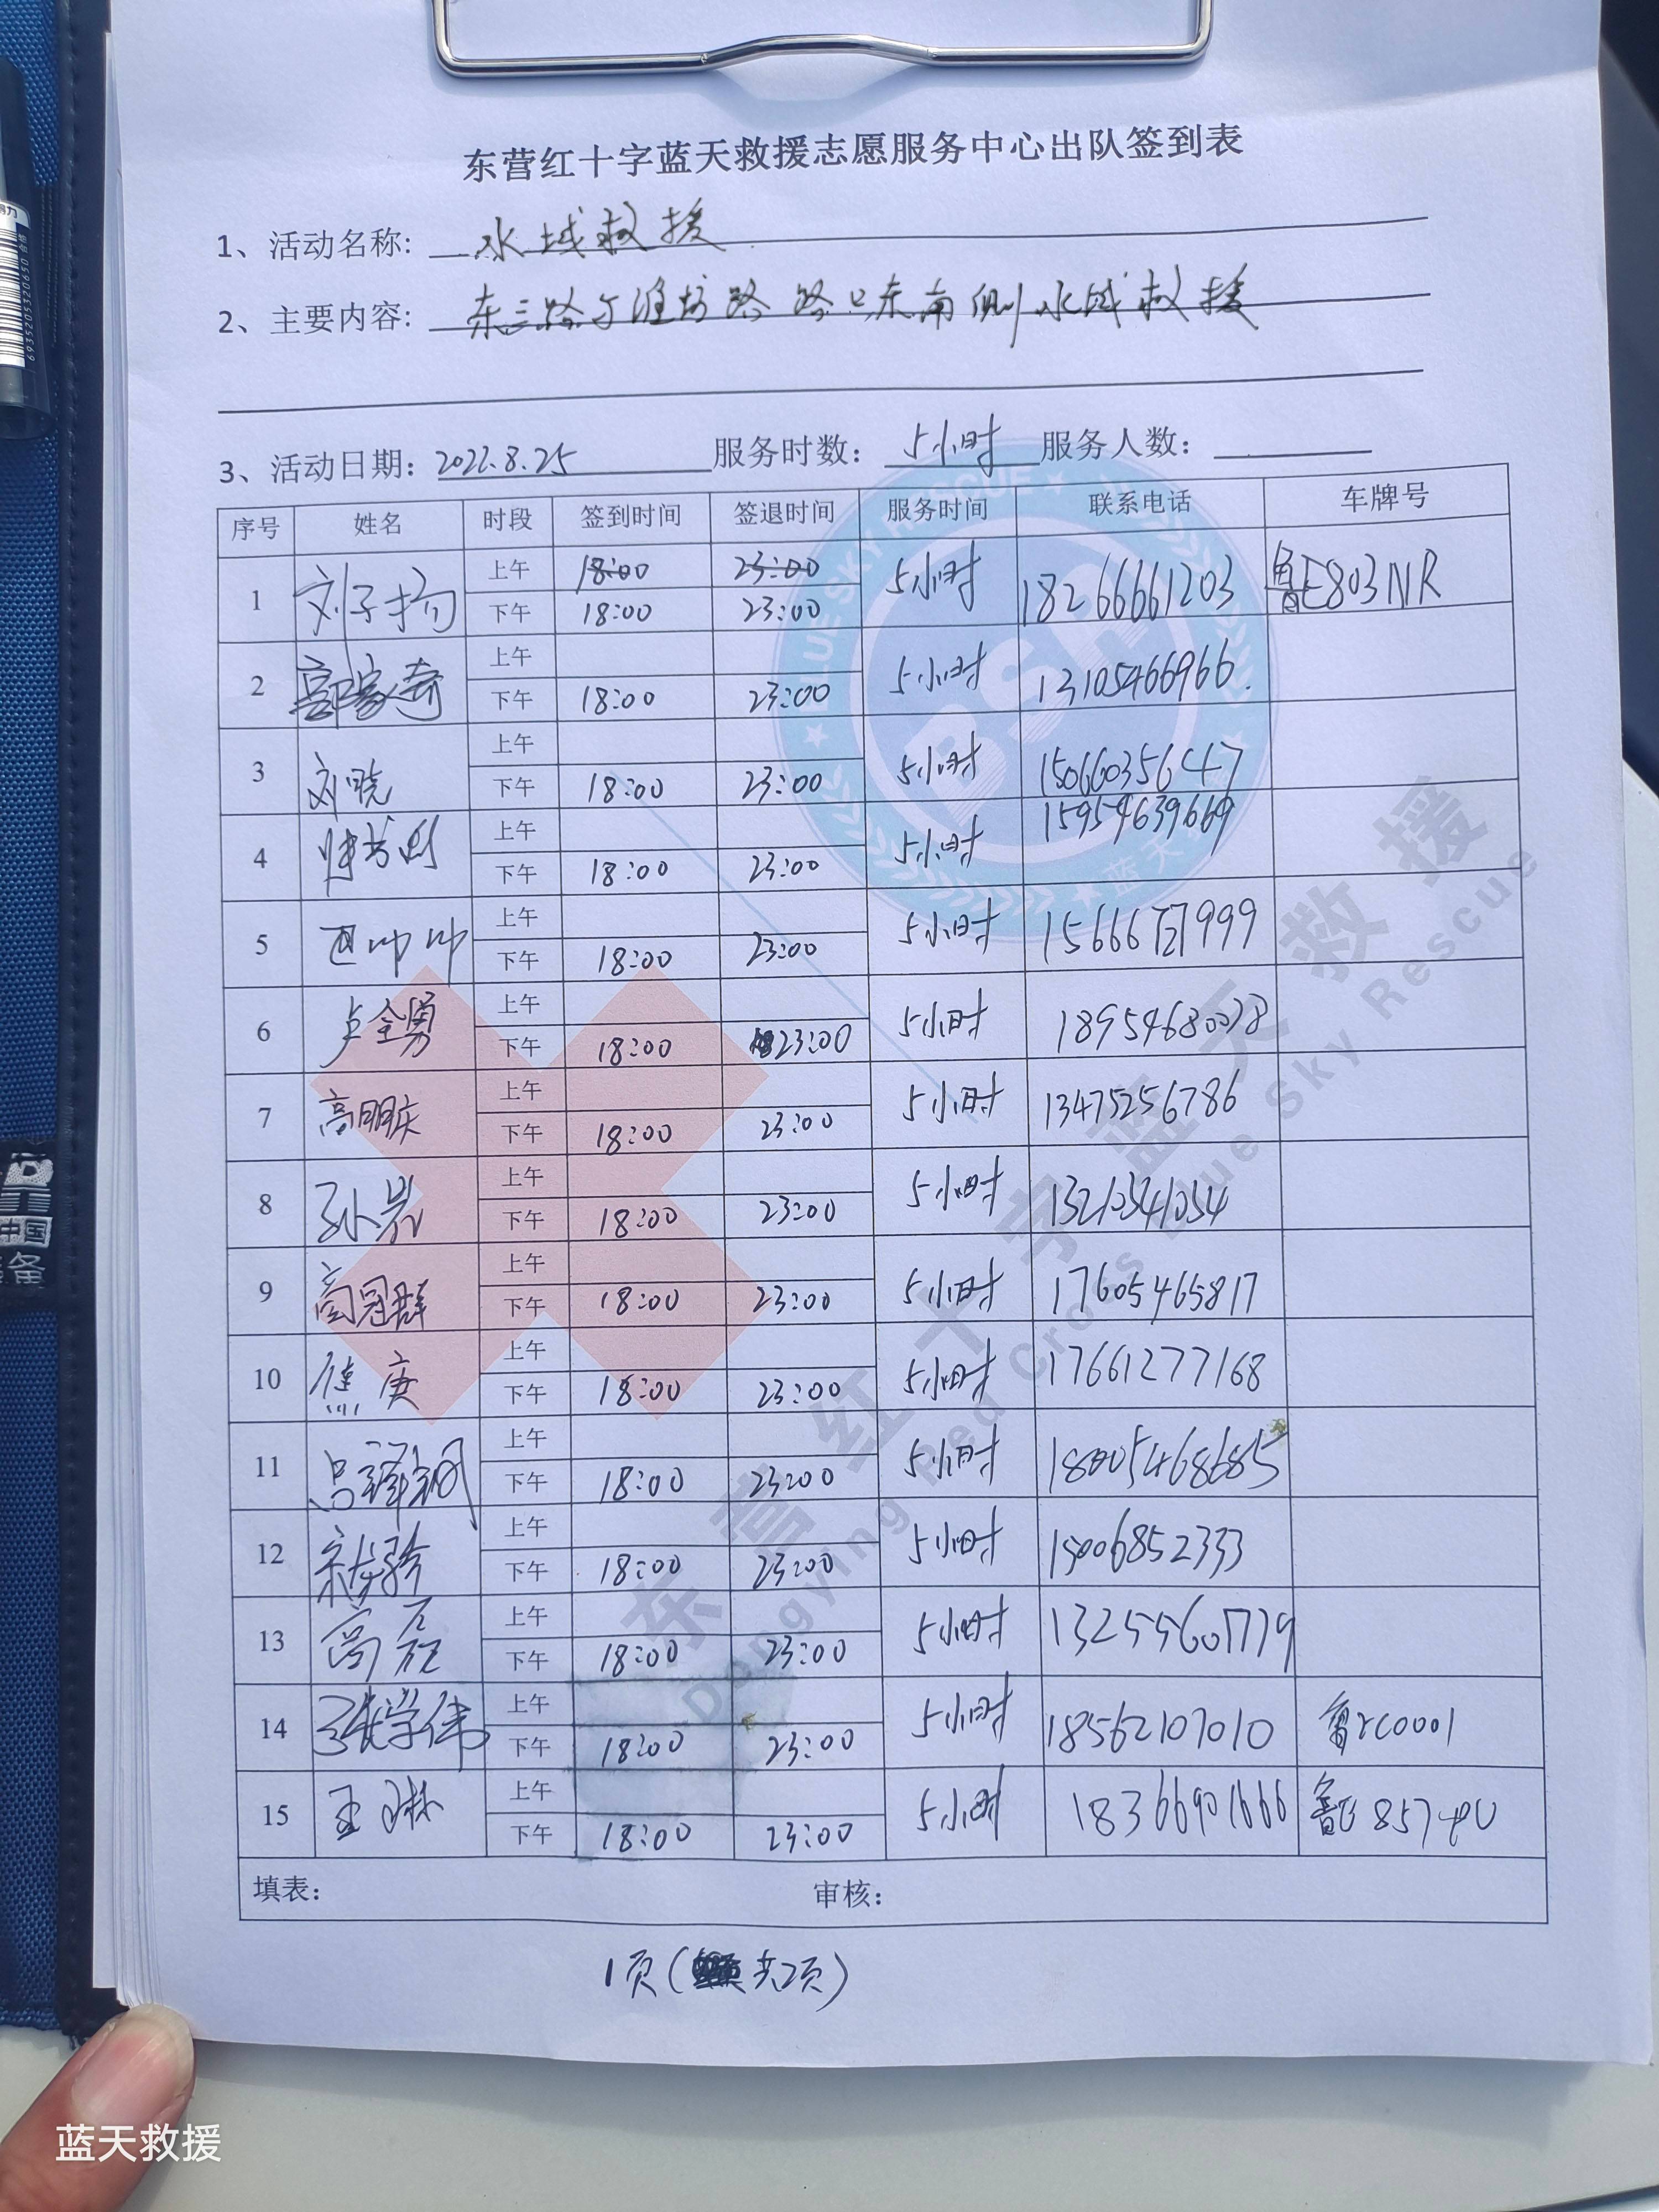 东营红十字蓝天救援志愿服务中心出队签到表
1、活动名称: 水域救援
2、主要内容: 东三路与潍坊路路口东南侧水域救援
3、活动日期: 2022.8.25 服务时数: 5小时 服务人数:
序号 姓名 时段 签到时间 签退时间 服务时间 联系电话 车牌号
1 刘子扬 上午 18:00 23:00 5小时 18266661203 鲁E803NR
下午 18:00 23:00
2 上午 5小时 13105466966.
下午 18:00 23:00
3 刘晓 上午 5小时 15066035647
下午 18:00 23:00
4 上午 5小时 15954639669
下午 18:00 23:00
5 上午 5小时
下午 18:00 23:00
6 卢全勇 上午 5小时
下午 18:00 23:00
7 高明庆 上午 5小时 13475256786
下午 18:00 23:00
8 孙岩 上午 5小时
下午 18:00 23:00
9 高冠群 上午 5小时 17605465817
下午 18:00 23:00
10 上午 5小时 17661277168
下午 18:00 23:00
11 上午 5小时
下午 18:00 23:00
12 上午 5小时 15006852333
下午 18:00 23:00
13 高磊 上午 5小时
下午 18:00 23:00
14 张学伟 上午 5小时 18562107010
下午 18:00 23:00
15 王琳 上午 5小时 18366901666
下午 18:00 23:00
填表: 审核:
1页( 共2页)
BLUE SKY RESCUE
BSR
蓝天
东营红十字蓝天救援
Dongying Red Cross Blue Sky Rescue
6935205320650
中国
备
蓝天救援